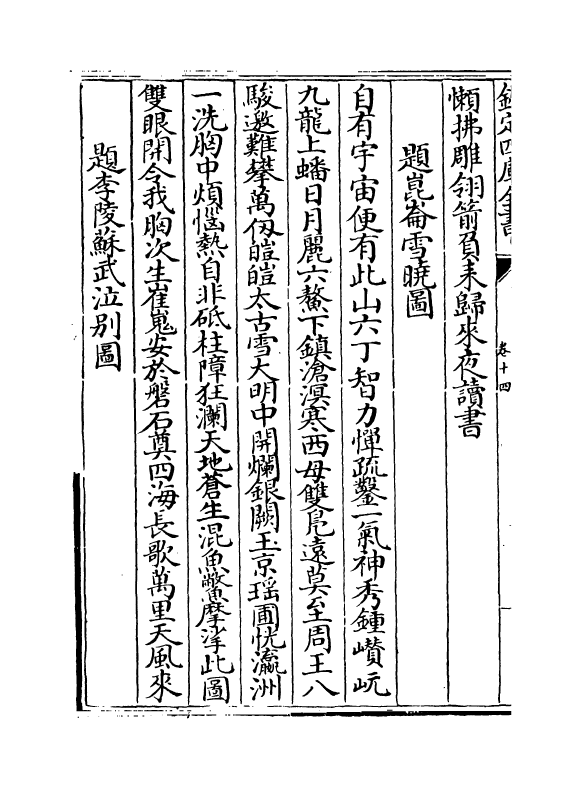 欽定四庫全書
卷十四
懶拂雕翎箭負耒歸來夜讀書
題崑崙雪曉圖
自有宇宙便有此山六丁智力憚疏鑿一氣神秀鍾巑岏
九龍上蟠日月麗六鰲下鎮滄溟寒西母雙鳧遠莫至周王八
駿邈難攀萬仭皚皚太古雪大明中開爛銀闕玉京瑶圃恍瀛洲
一洗胸中煩惱熱自非砥柱障狂瀾天地蒼生混魚鼈摩挲此圖
雙眼開令我胸次生崔嵬安於磐石奠四海長歌萬里天風來
題李陵蘇武泣别圖